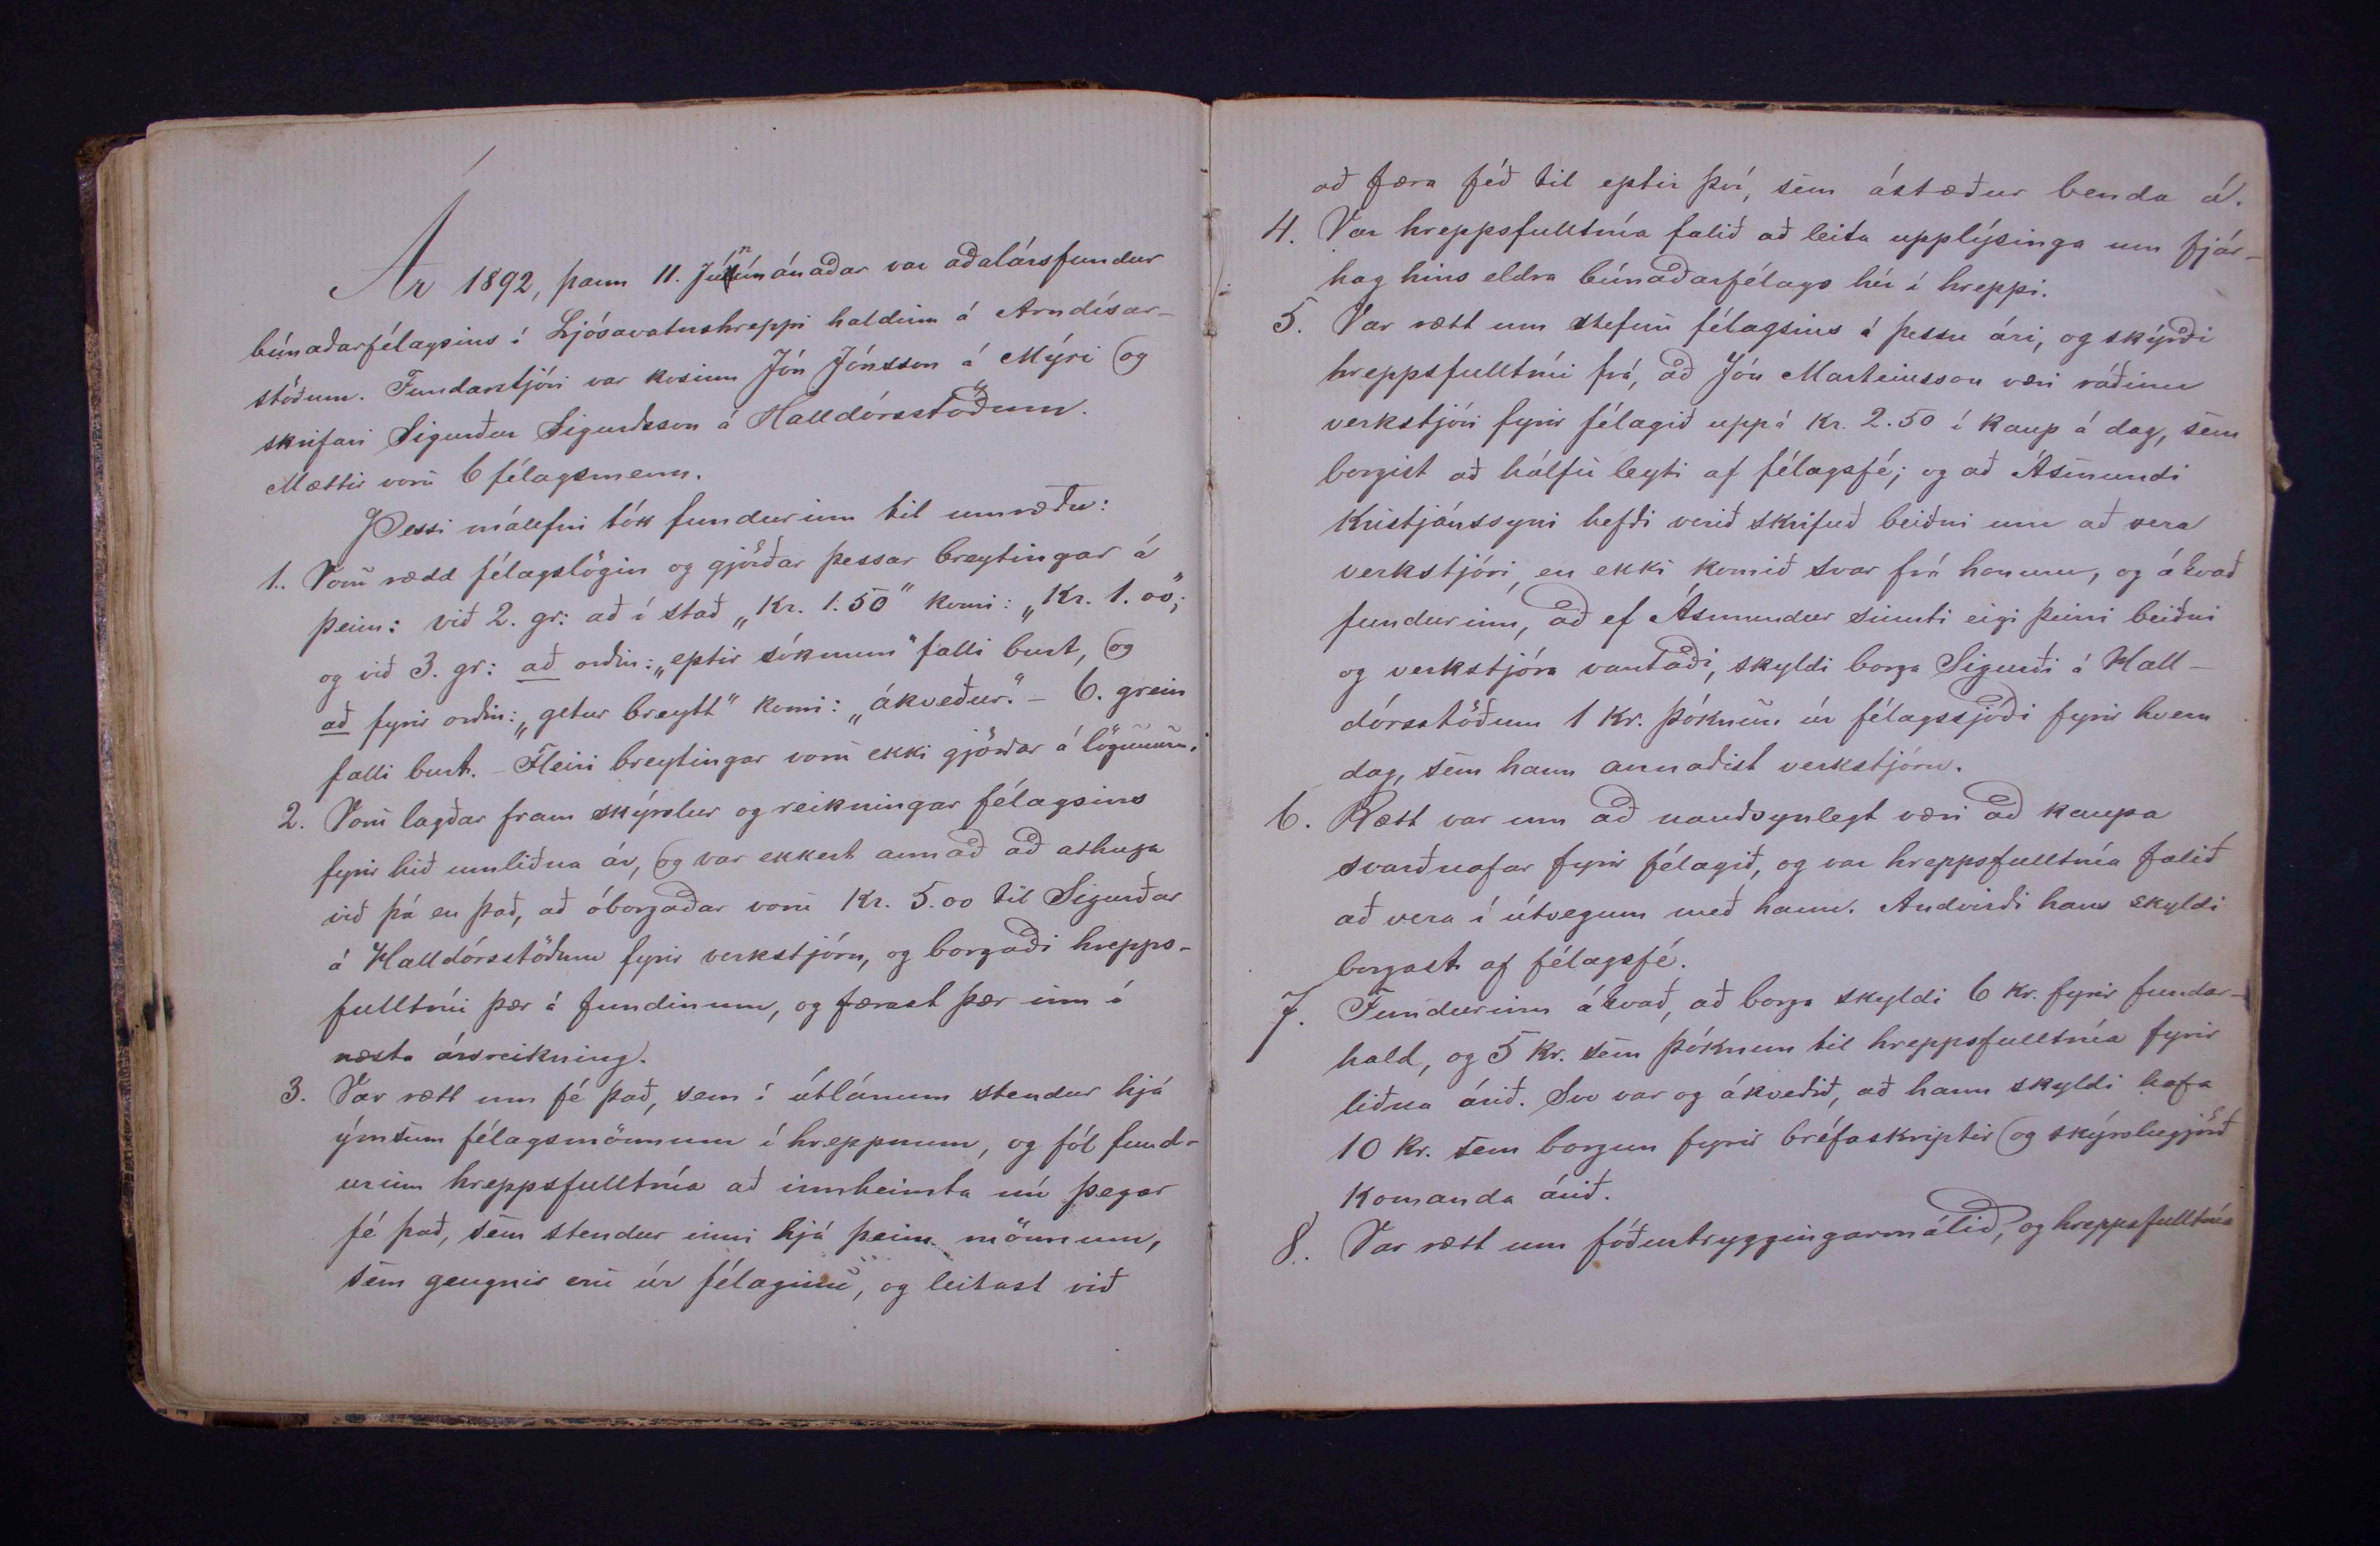 Ár 1892, þann 11. Júnímánaðar var aðalársfundur
búnaðarfélagsins í Ljósavatnshreppi haldinn á Arndísar-
stöðum. Fundarstjóri var kosinn Jón Jónsson á Mýri og
skrifari Sigurður Sigurðsson á Halldórsstöðum.
Mættir voru 6 félagsmenn.
Þessi málefni tók fundurinn til umræðu:
1. Voru rædd félagslögin og gjörðar þessar breytingar á
þeim: við 2. gr: að í stað „Kr. 1.50“ komi: „Kr. 1.00“;
og við 3. gr: að orðin: „eptir sóknum“ falli burt, og
að fyrir orðin: „getur breytt“ komi: „ákveður“. – 6. grein
falli burt. – Fleiri breytingar voru ekki gjörðar á lögunum.
2. Voru lagðar fram skýrslur og reikningar félagsins
fyrir hið umliðna ár, og var ekkert annað að athuga
við þá en það, að óborgaðar voru Kr. 5.00 til Sigurðar
á Halldórsstöðum fyrir verkstjórn, og borgaði hrepps-
fulltrúi þær á fundinum, og færast þær inn í
næsta ársreikning.
3. Var rætt um fé það, sem í útlánum stendur hjá
ýmsum félagsmönnum í hreppnum, og fól fund-
urinn hreppsfulltrúa að innheimta nú þegar
fé það, sem stendur inni hjá þeim mönnum,
sem gengnir eru úr félaginu, og leitast við
að færa féð til eptir því, sem ástæður benda á.
4. Var hreppsfulltrúa falið að leita upplýsinga um fjár-
hag hins eldra búnaðarfélags hér í hreppi.
5. Var rætt um stefnu félagsins á þessu ári, og skýrði
hreppsfulltrúi frá, að Jón Marteinsson væri ráðinn
verkstjóri fyrir félagið uppá Kr. 2.50 í kaup á dag, sem
borgist að hálfu leyti af félagsfé; og að Ásmundi
Kristjánssyni hefði verið skrifuð beiðni um að vera
verkstjóri, en ekki komið svar frá honum, og ákvað
fundurinn, að ef Ásmundur sinnti eigi þeirri beiðni
og verkstjóra vantaði, skyldi borga Sigurði á Hall-
dórsstöðum 1 Kr. þóknun úr félagssjóði fyrir hvern
dag, sem hann annaðist verkstjórn.
6. Rætt var um að nauðsynlegt væri að kaupa
svarðnafar fyrir félagið, og var hreppsfulltrúa falið
að vera í útvegum með hann. Andvirði hans skyldi
borgast af félagsfé.
7. Fundurinn ákvað, að borga skyldi 6 Kr. fyrir fundar-
hald, og 5 Kr. sem þóknun til hreppsfulltrúa fyrir
liðna árið. Svo var og ákveðið, að hann skyldi hafa
10 Kr. sem borgun fyrir bréfaskriptir og skýrslugjörð
komanda árið.
8. Var rætt um fóðurtryggingarmálið, og hreppsfulltrúa